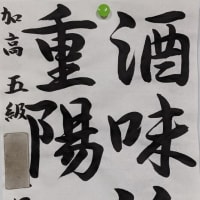 酒味
重陽
加高 五級